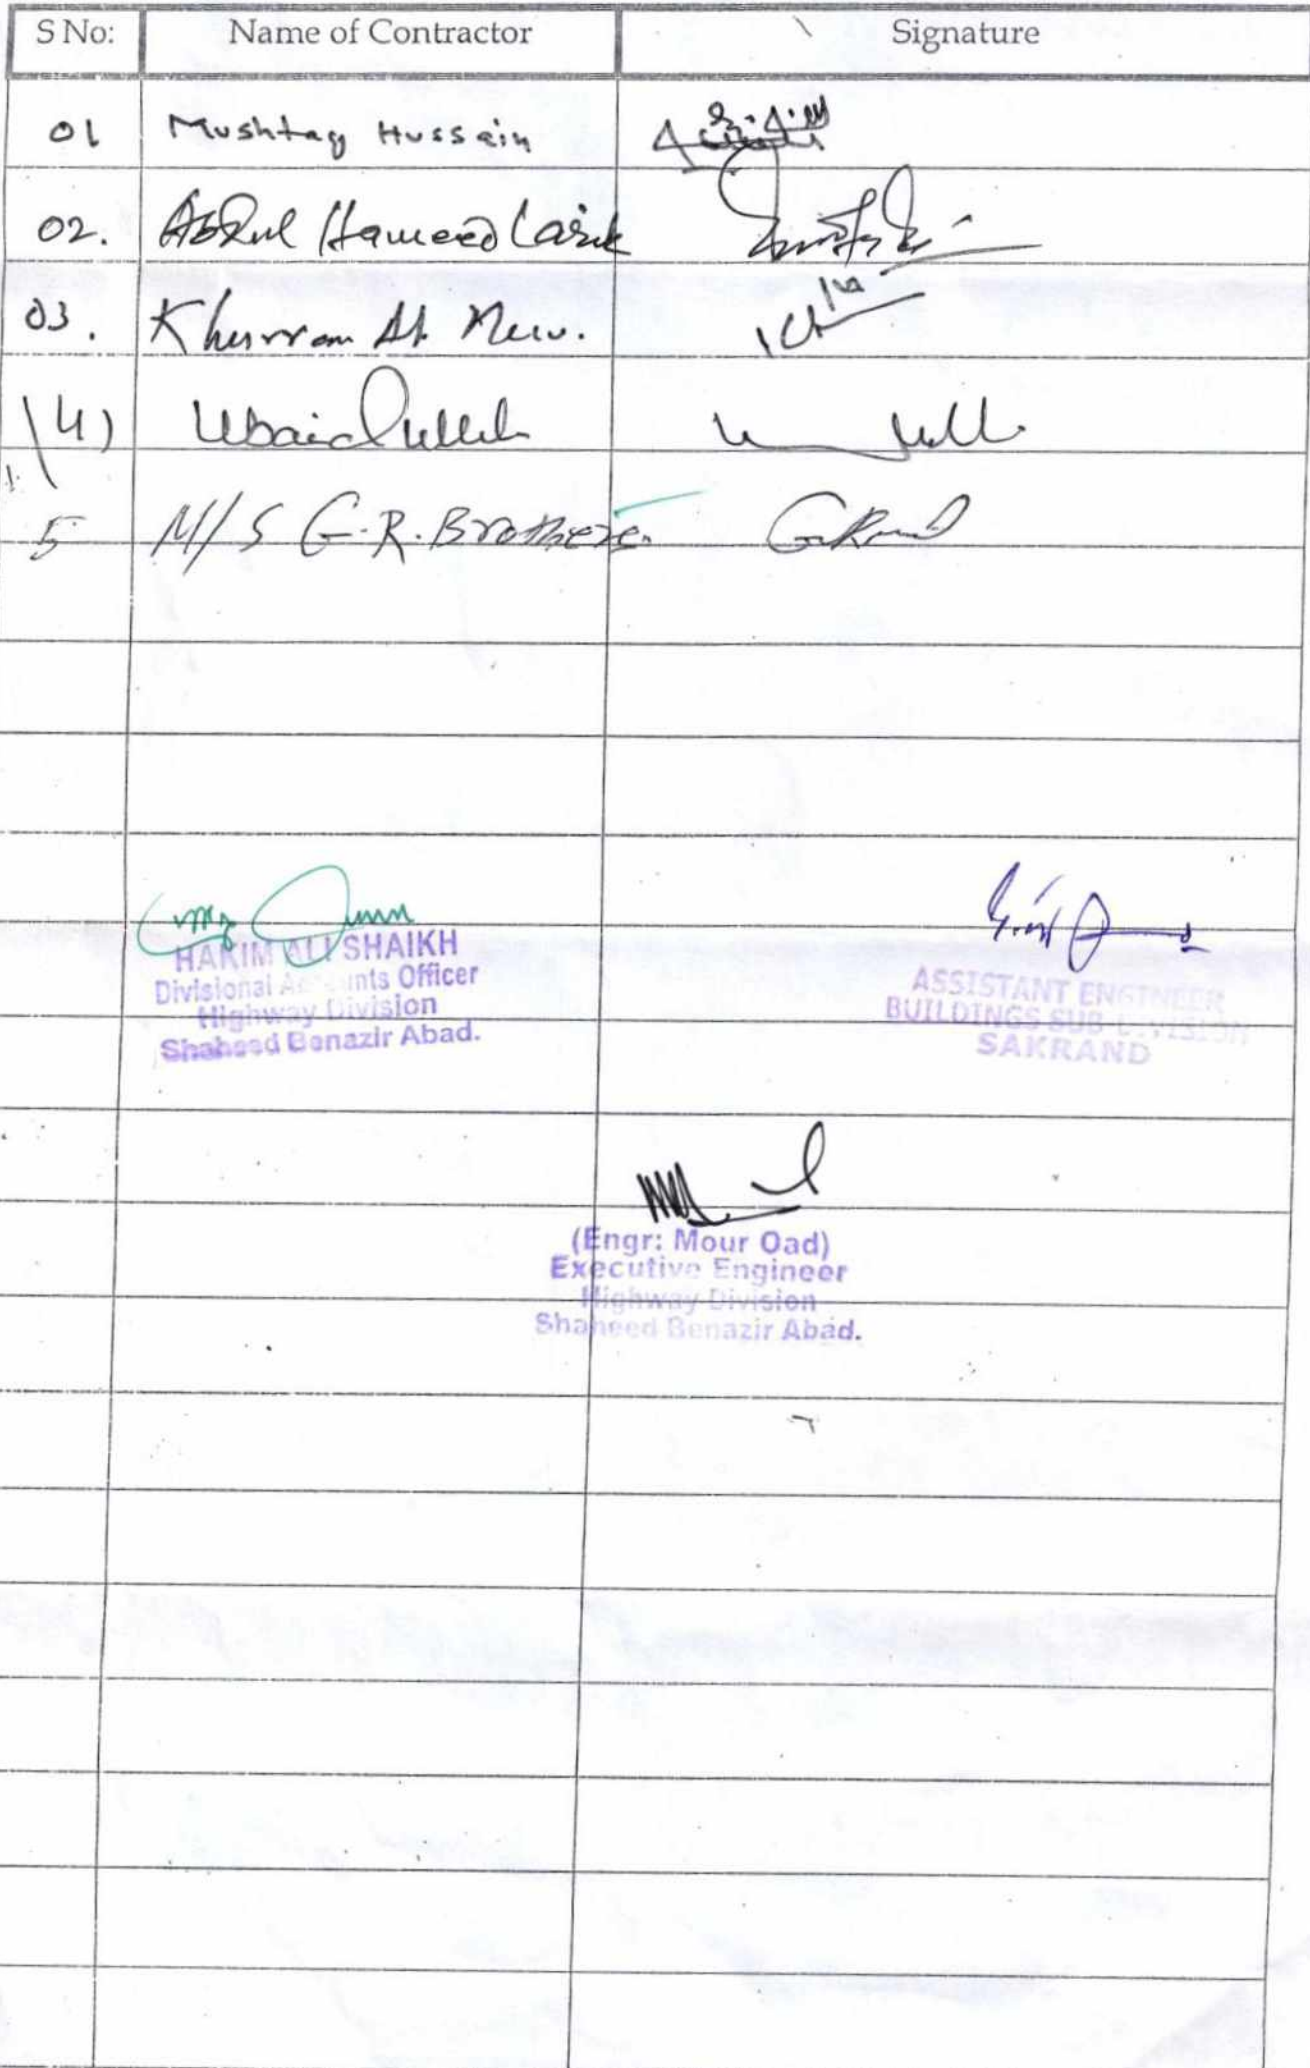 S No: Name of Contractor Signature
01 Mushtaq Hussain
02. Abdul Hameed Larik
03. Khurram
4) Ubaidullah
5 M/S G.R. Brothers.
HAKIM ALI SHAIKH
Divisional Accounts Officer
Highway Division
Shaheed Benazir Abad.
ASSISTANT ENGINEER
BUILDINGS SUB-DIVISION
SAKRAND
(Engr: Mour Oad)
Executive Engineer
Highway Division
Shaheed Benazir Abad.